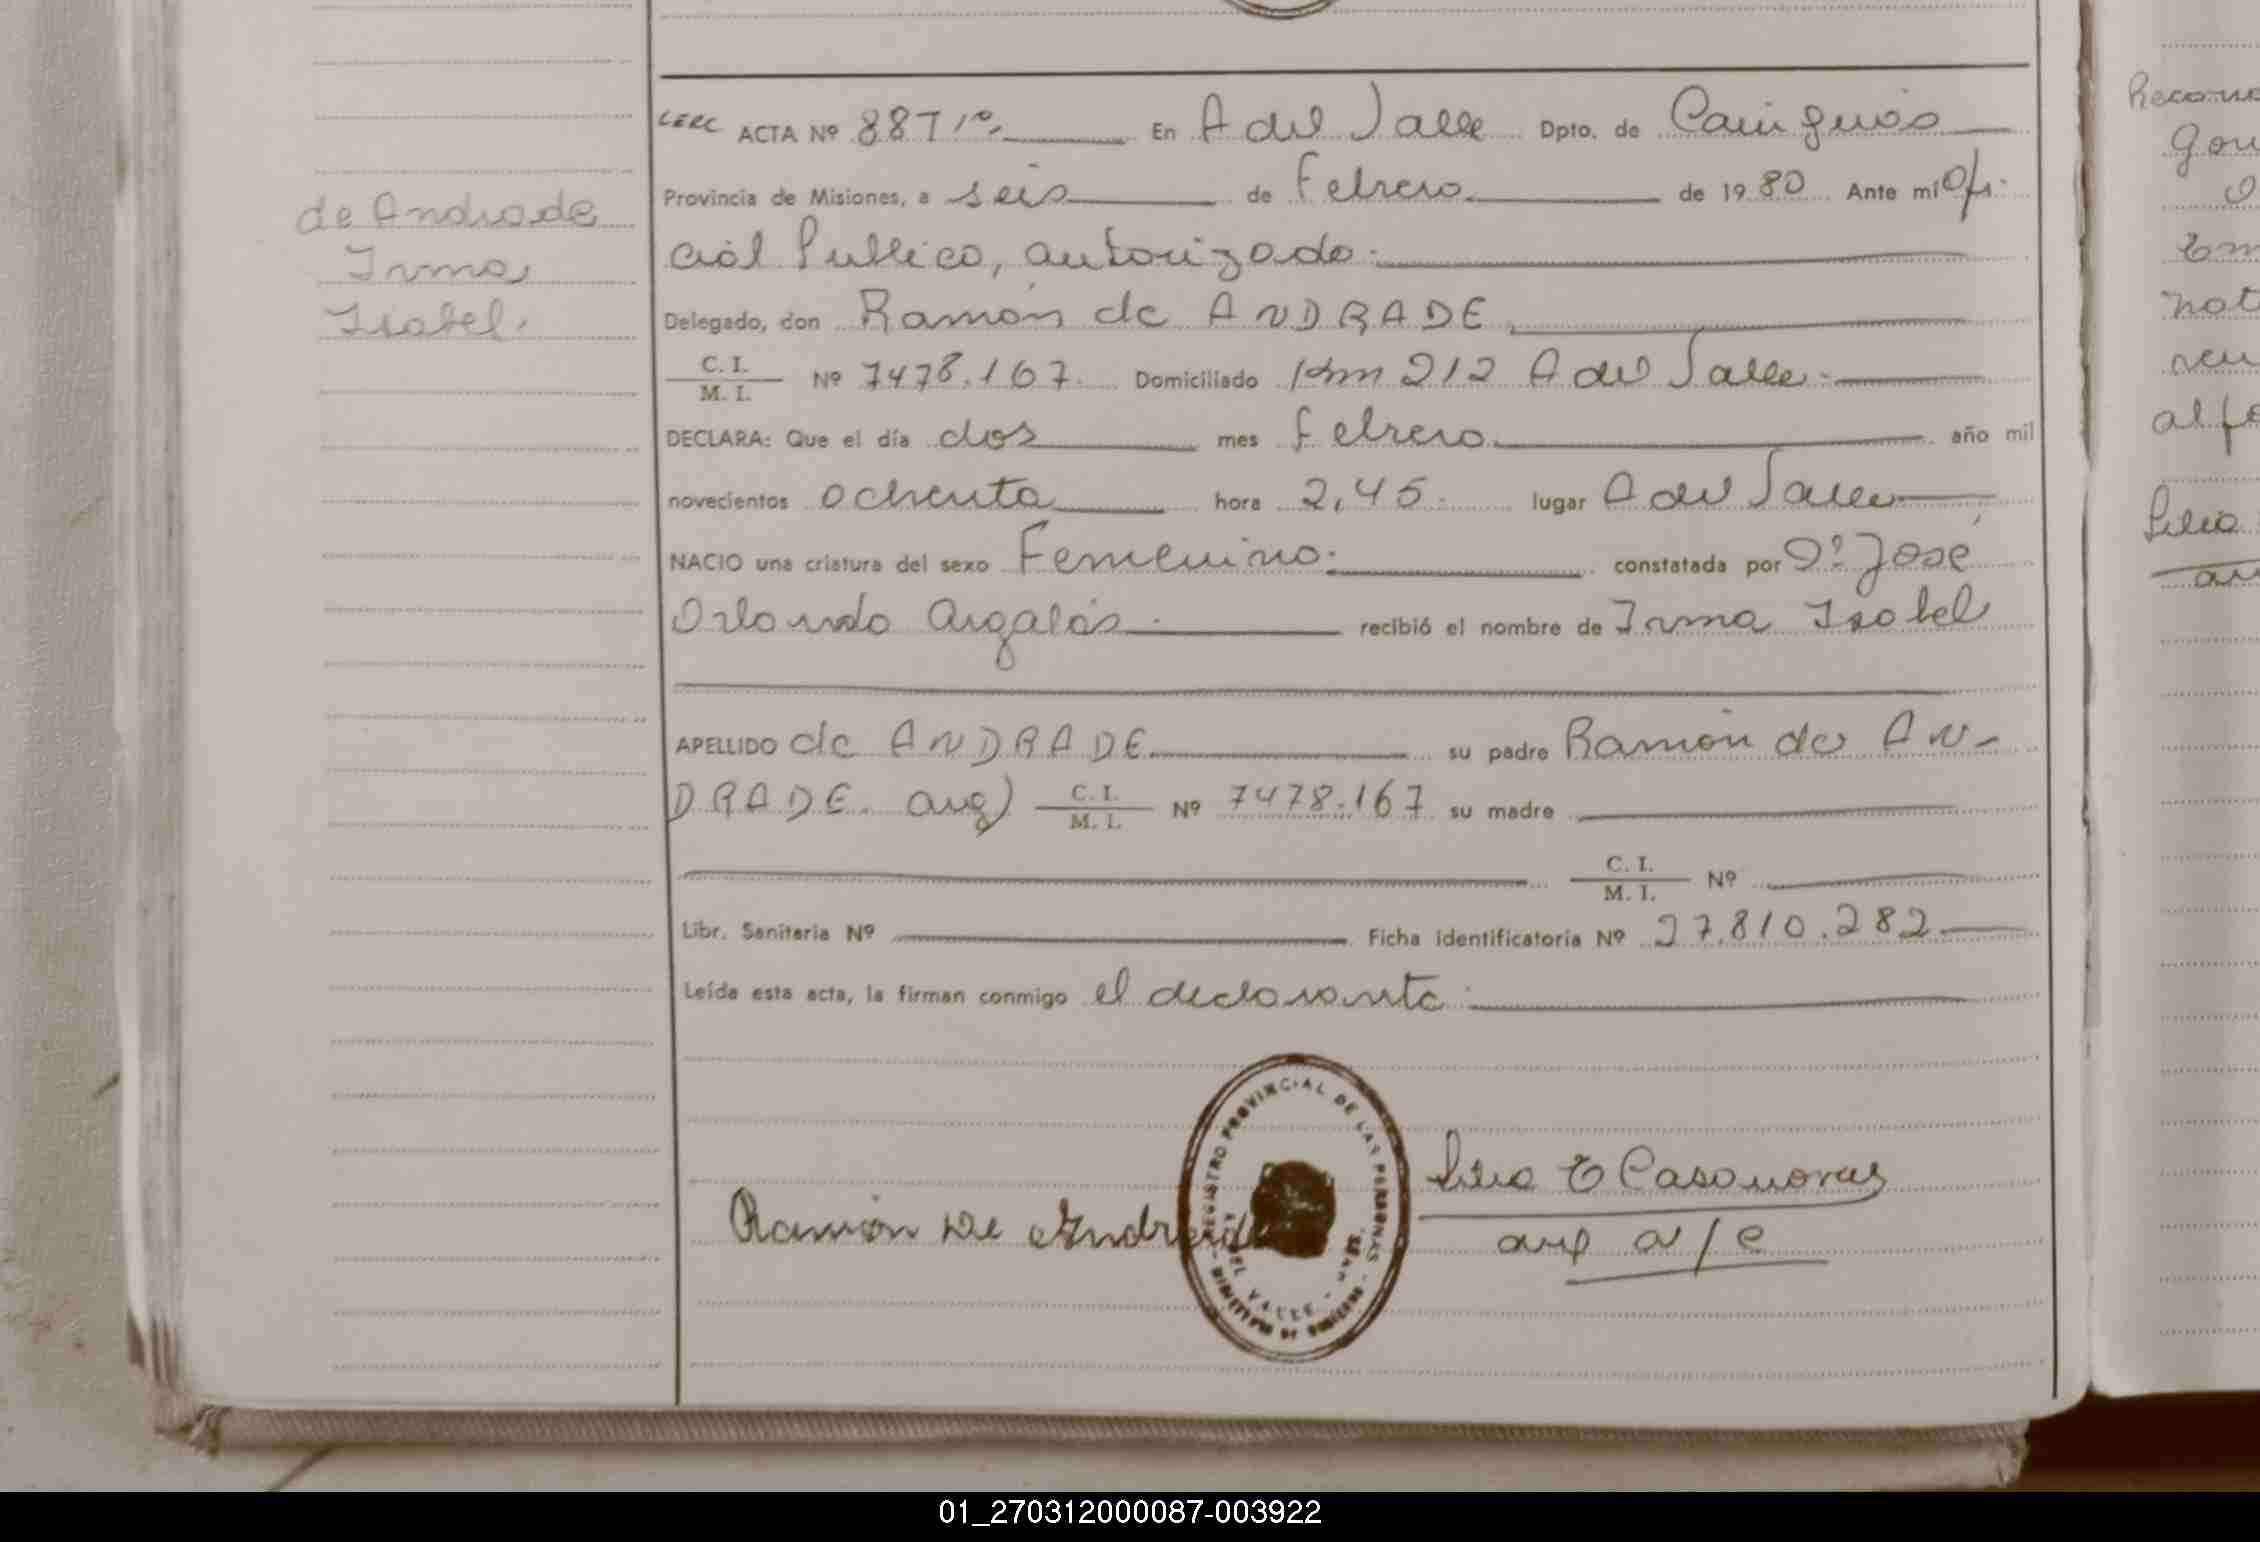 de Andrade
Irma
Isabel.
CERC ACTA Nº 887 1º. En A del Valle Dpto. de Cainguás
Provincia de Misiones, a seis de Febrero de 1980 Ante mi Ofi-
cial Publico, autorizado.
Delegado, don Ramón de ANDRADE
C. I.
M. I. Nº 7478.167. Domiciliado Km 212 A del Valle.
DECLARA: Que el día dos mes Febrero año mil
novecientos ochenta hora 2,45. lugar A del Valle
NACIO una criatura del sexo Femenino. constatada por Dr. José
Orlando Argalás. recibió el nombre de Irma Isabel
APELLIDO de ANDRADE su padre Ramón de AN-
DRADE. arg) C. I.
M. I. Nº 7478.167 su madre
C. I.
M. I. Nº
Libr. Sanitaria Nº Ficha identificatoria Nº 27.810.282
Leída esta acta, la firman conmigo el declarante.
Ramón De Andrade
REGISTRO PROVINCIAL DE LAS PERSONAS
DEL VALLE
E Casanovas
a/c
Recono
Em
not
al fo
01_270312000087-003922